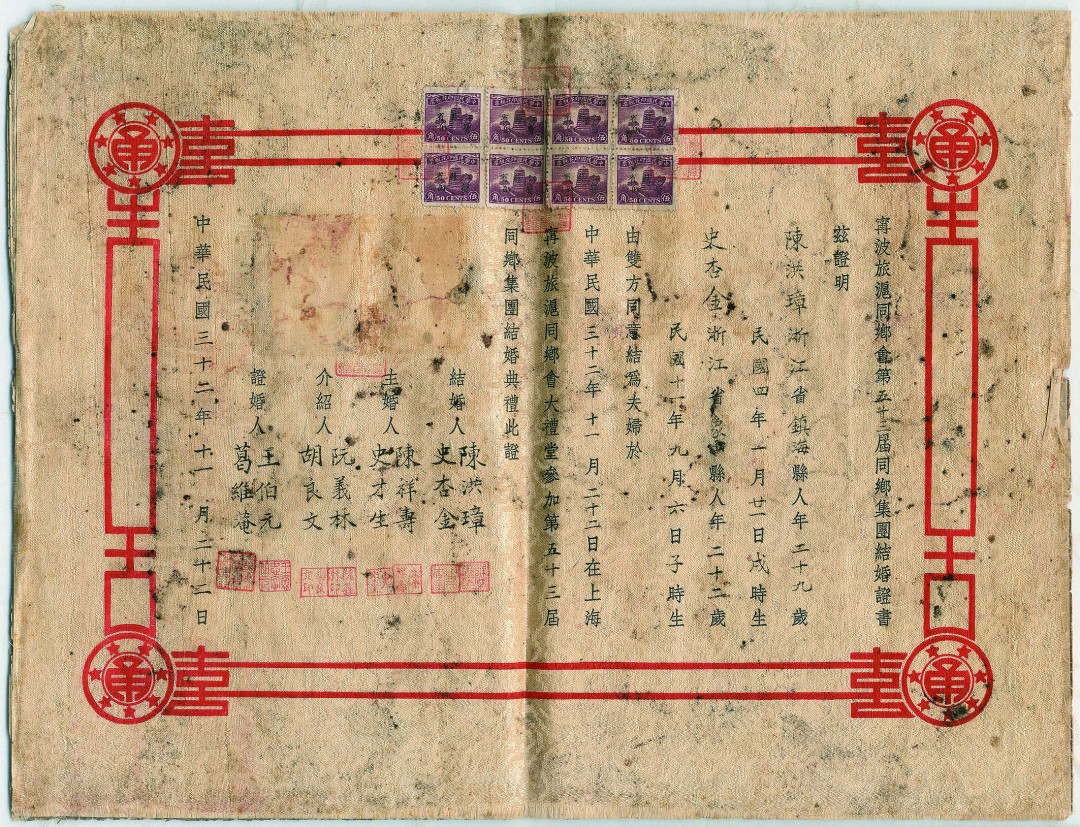 甯波旅滬同鄉會第五十三屆同鄉集團結婚證書
兹證明
陳洪璋浙江省鎮海縣人年二十九歲
民國四年一月廿一日戌時生
史杏金浙江省縣人年二十二歲
民國十一年九月六日子時生
由雙方同意結爲夫婦於
中華民國三十二年十一月二十二日在上海
甯波旅滬同鄉會大禮堂參加第五十三屆
同鄉集團結婚典禮此證
結婚人 陳洪璋
史杏金
主婚人 陳祥壽
史才生
介紹人 阮義林
胡良文
證婚人 王伯元
葛維庵
中華民國三十二年十一月二十二日
50 CENTS
50 CENTS
50 CENTS
50 CENTS
50 CENTS
50 CENTS
50 CENTS
50 CENTS